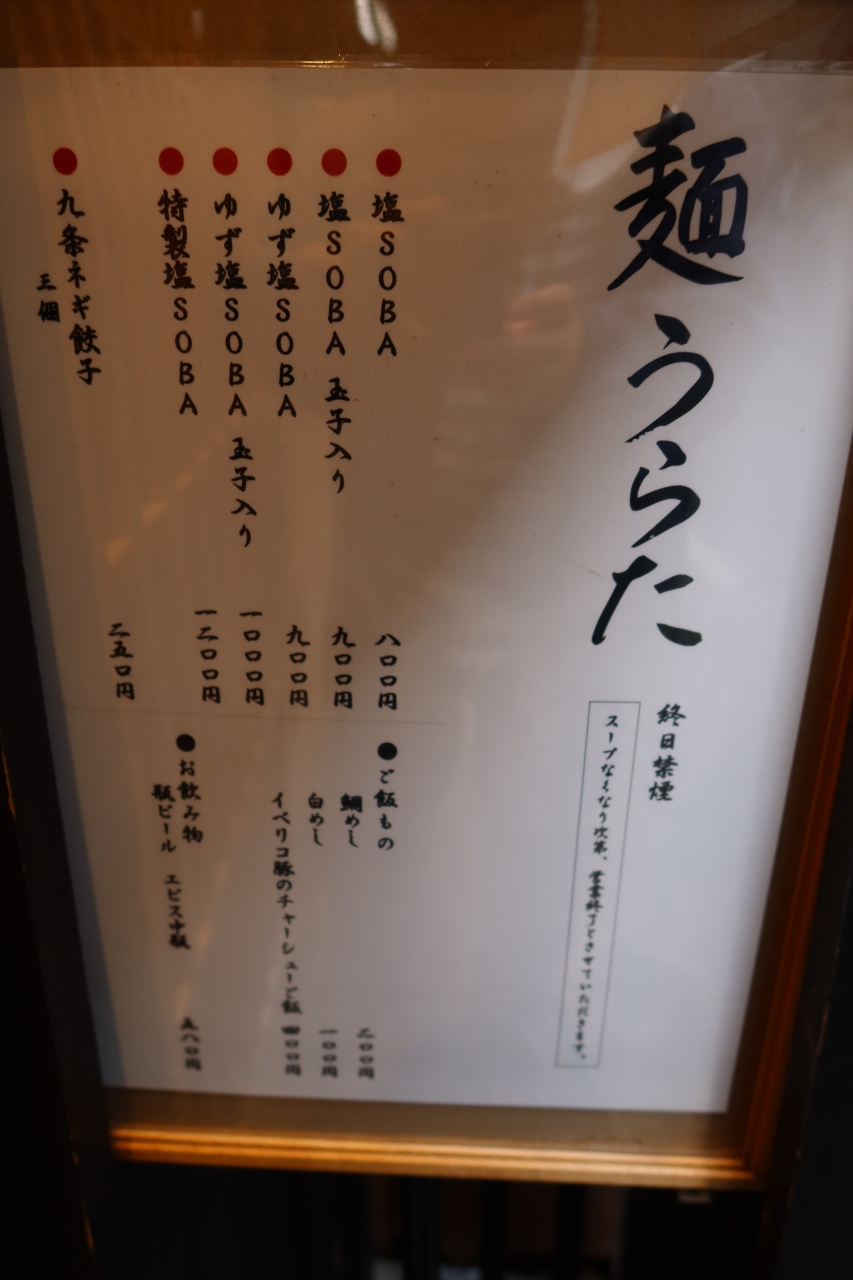 麺 うらた
終日禁煙
スープなくなり次第、営業終了とさせていただきます。
塩SOBA 八〇〇円
塩SOBA 玉子入り 九〇〇円
ゆず塩SOBA 九〇〇円
ゆず塩SOBA 玉子入り 一〇〇〇円
特製塩SOBA 一二〇〇円
九条ネギ餃子 三個 二五〇円
ご飯もの
鯛めし 二〇〇円
白めし 一〇〇円
イベリコ豚のチャーシューご飯 四〇〇円
お飲み物
瓶ビール エビス中瓶 五八〇円